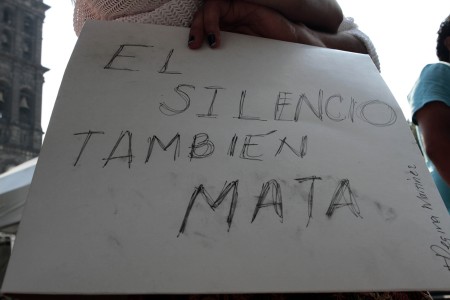 EL
SILENCIO
TAMBIÉN
MATA